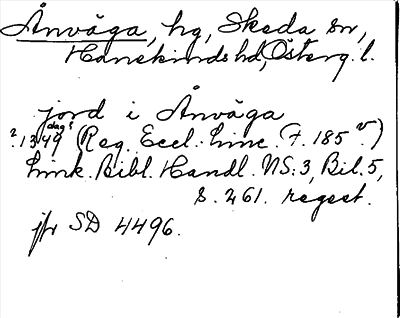 Ånväga, hg, Skeda sn,
Hanekinds hd, Österg. l.
jord i Ånväga
dag?
? 1349 (Reg. Eccl. Linc. F. 185 v.)
Link. Bibl. Handl. NS: 3, Bil. 5,
S. 261. regest.
jfr SD 4496.